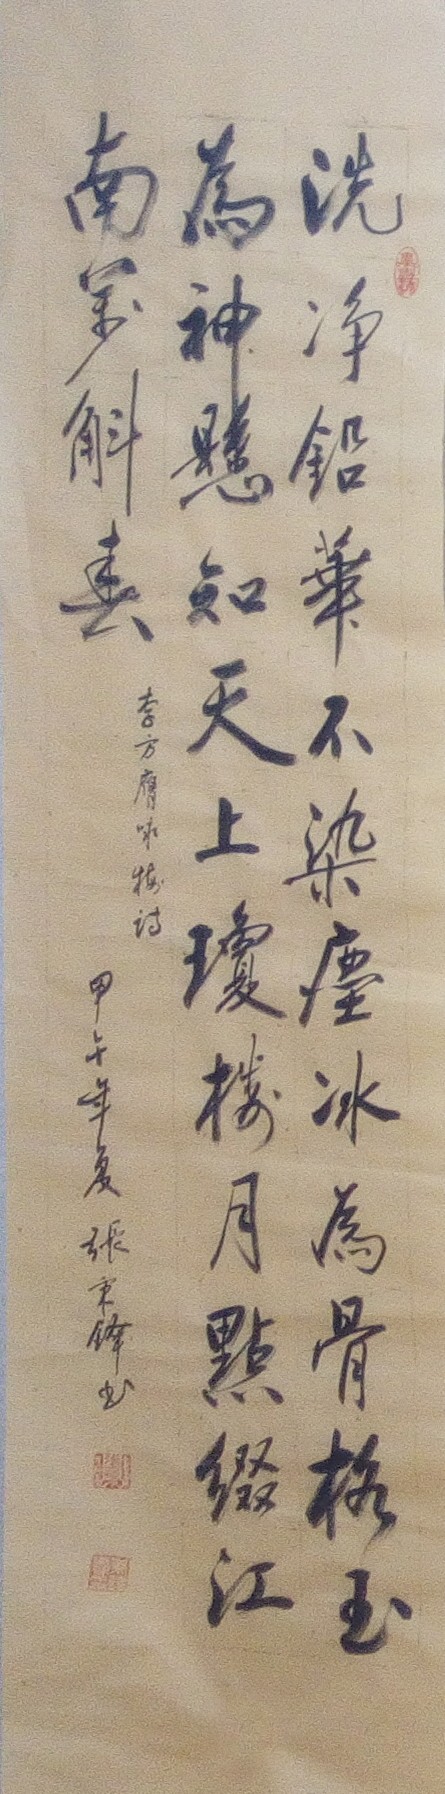 洗净鉛華不染塵冰為骨格玉
為神懸知天上瓊樓月點綴江
南萬斛春
李方膺咏梅詩
甲午年夏張東鋒书